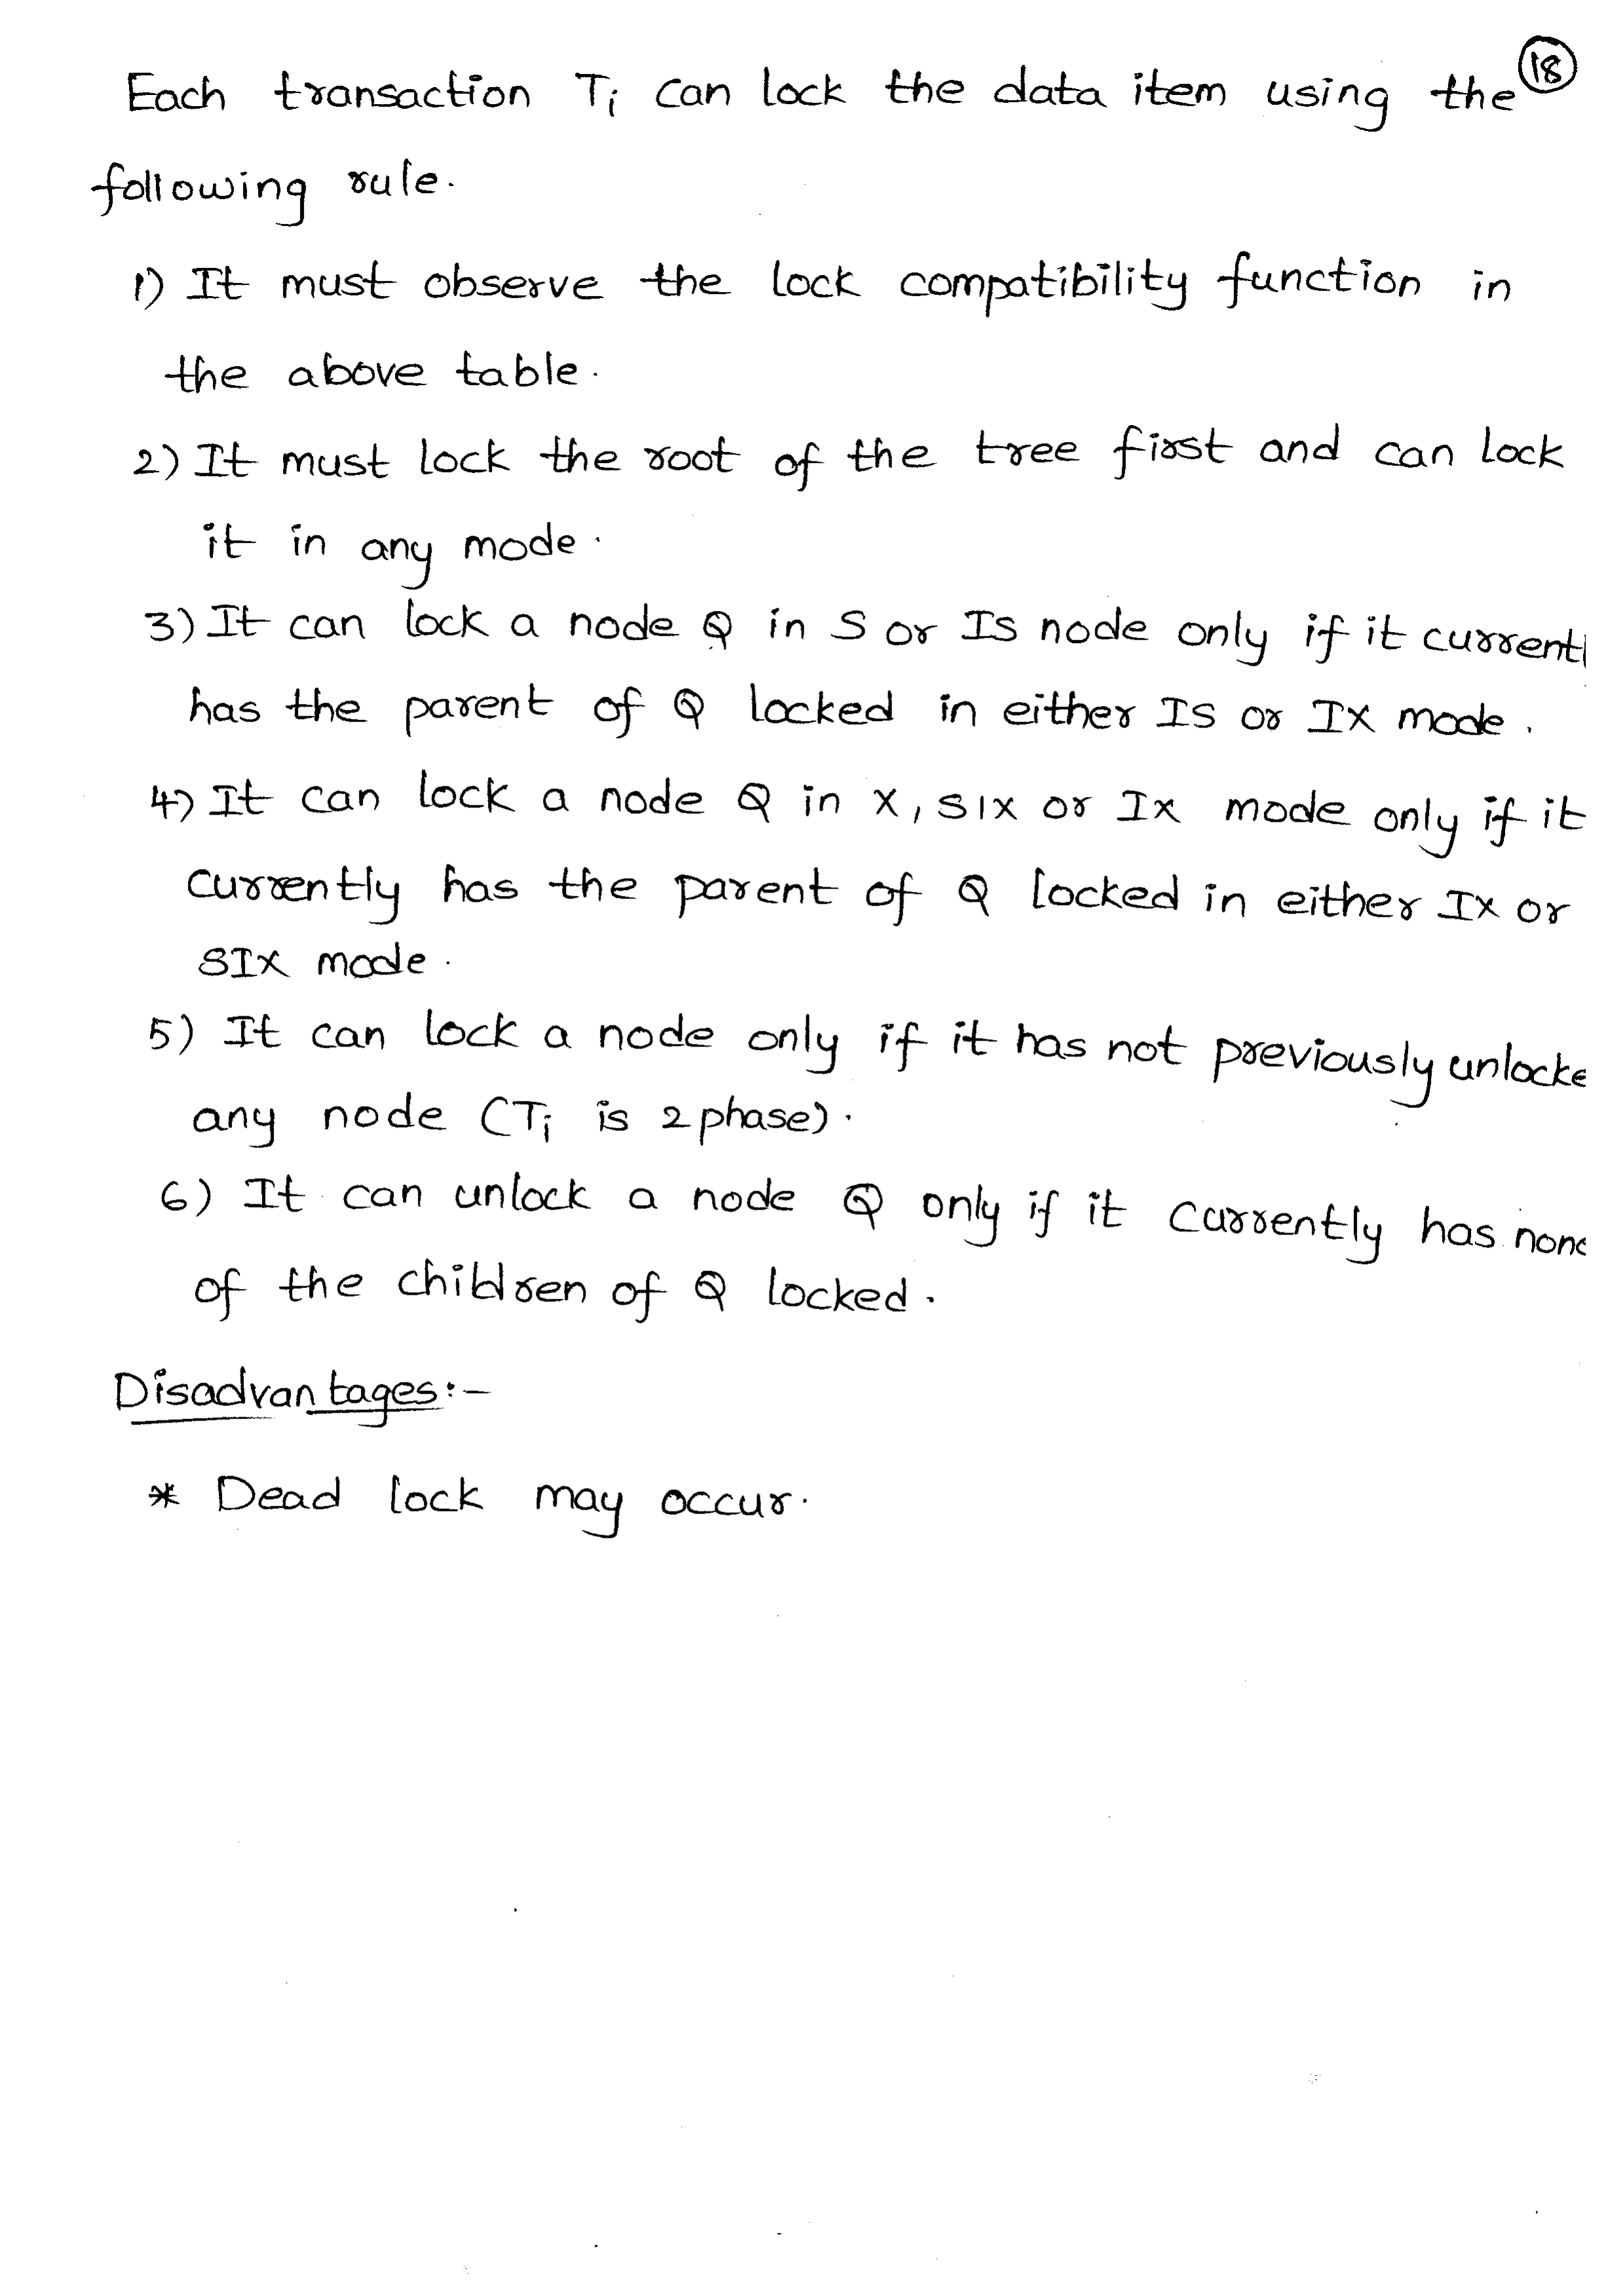 18
Each transaction Ti can lock the data item using the
following rule.
1) It must observe the lock compatibility function in
the above table.
2) It must lock the root of the tree first and can lock
it in any mode.
3) It can lock a node Q in S or IS node only if it currentl
has the parent of Q locked in either IS or IX mode.
4) It can lock a node Q in X, SIX or IX mode only if it
currently has the parent of Q locked in either IX or
SIX mode.
5) It can lock a node only if it has not previously unlocke
any node (Ti is 2 phase).
6) It can unlock a node Q only if it currently has none
of the children of Q locked.
Disadvantages:-
* Dead lock may occur.